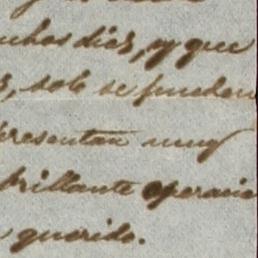 uchos dias, y que
s, solo se pueden
presentan muy
brillante operacio
querido.